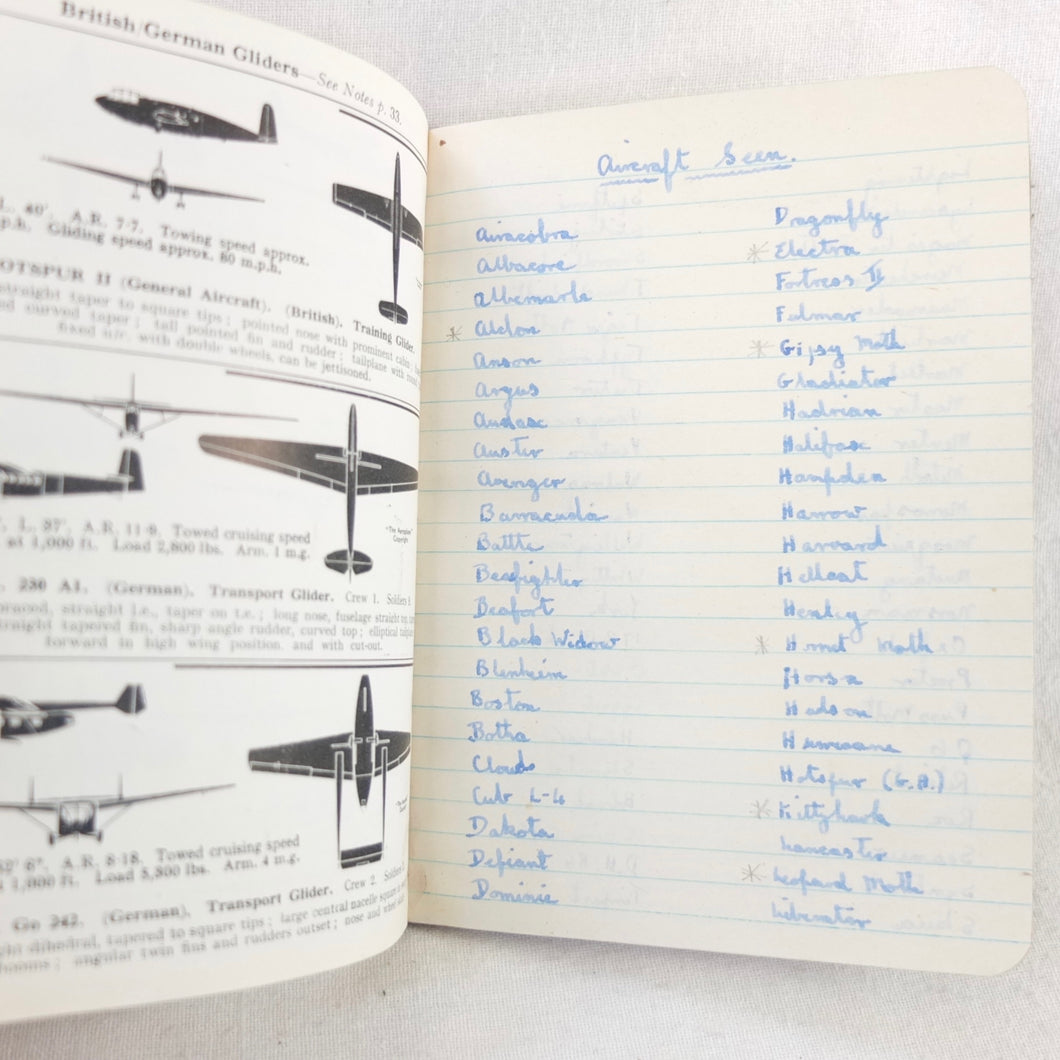 British/German Gliders—See Notes p. 33.
L. 40′, A.R. 7·7. Towing speed approx.
p.h. Gliding speed approx. 80 m.p.h.
OTSPUR II (General Aircraft). (British). Training Glider.
straight taper to square tips; pointed nose with prominent cabin;
ed curved taper; tall pointed fin and rudder; tailplane with
fixed u/c. with double wheels, can be jettisoned.
L. 37′, A.R. 11·9. Towed cruising speed
at 1,000 ft. Load 2,800 lbs. Arm. 1 m.g.
"The Aeroplane"
Copyright
230 A1. (German). Transport Glider. Crew 1.
braced, straight l.e., taper on t.e.; long nose, fuselage straight top,
straight tapered fin, sharp angle rudder, curved top; elliptical
forward in high wing position, and with cut-out.
6″, A.R. 8·18. Towed cruising speed
1,000 ft. Load 5,800 lbs. Arm. 4 m.g.
Go 242. (German). Transport Glider. Crew 2.
dihedral, tapered to square tips; large central nacelle square
booms; angular twin fins and rudders outset; nose and
Aircraft Seen.
Airacobra
Albacore
Albemarle
* Aldon
Anson
Argus
Audax
Auster
Avenger
Barracuda
Battle
Beafighter
Beafort
Black Widow
Blenheim
Boston
Botha
Cloud
Cub L-4
Dakota
Defiant
Dominie
Dragonfly
* Electra
Fortress II
Fulmar
* Gipsy Moth
Gladiator
Hadrian
Halifax
Hampden
Harrow
Harvard
Hellcat
Henley
* Hornet Moth
Horsa
Hudson
Hurricane
Hotspur (G.A.)
* Kittyhawk
Lancaster
* Leopard Moth
Liberator